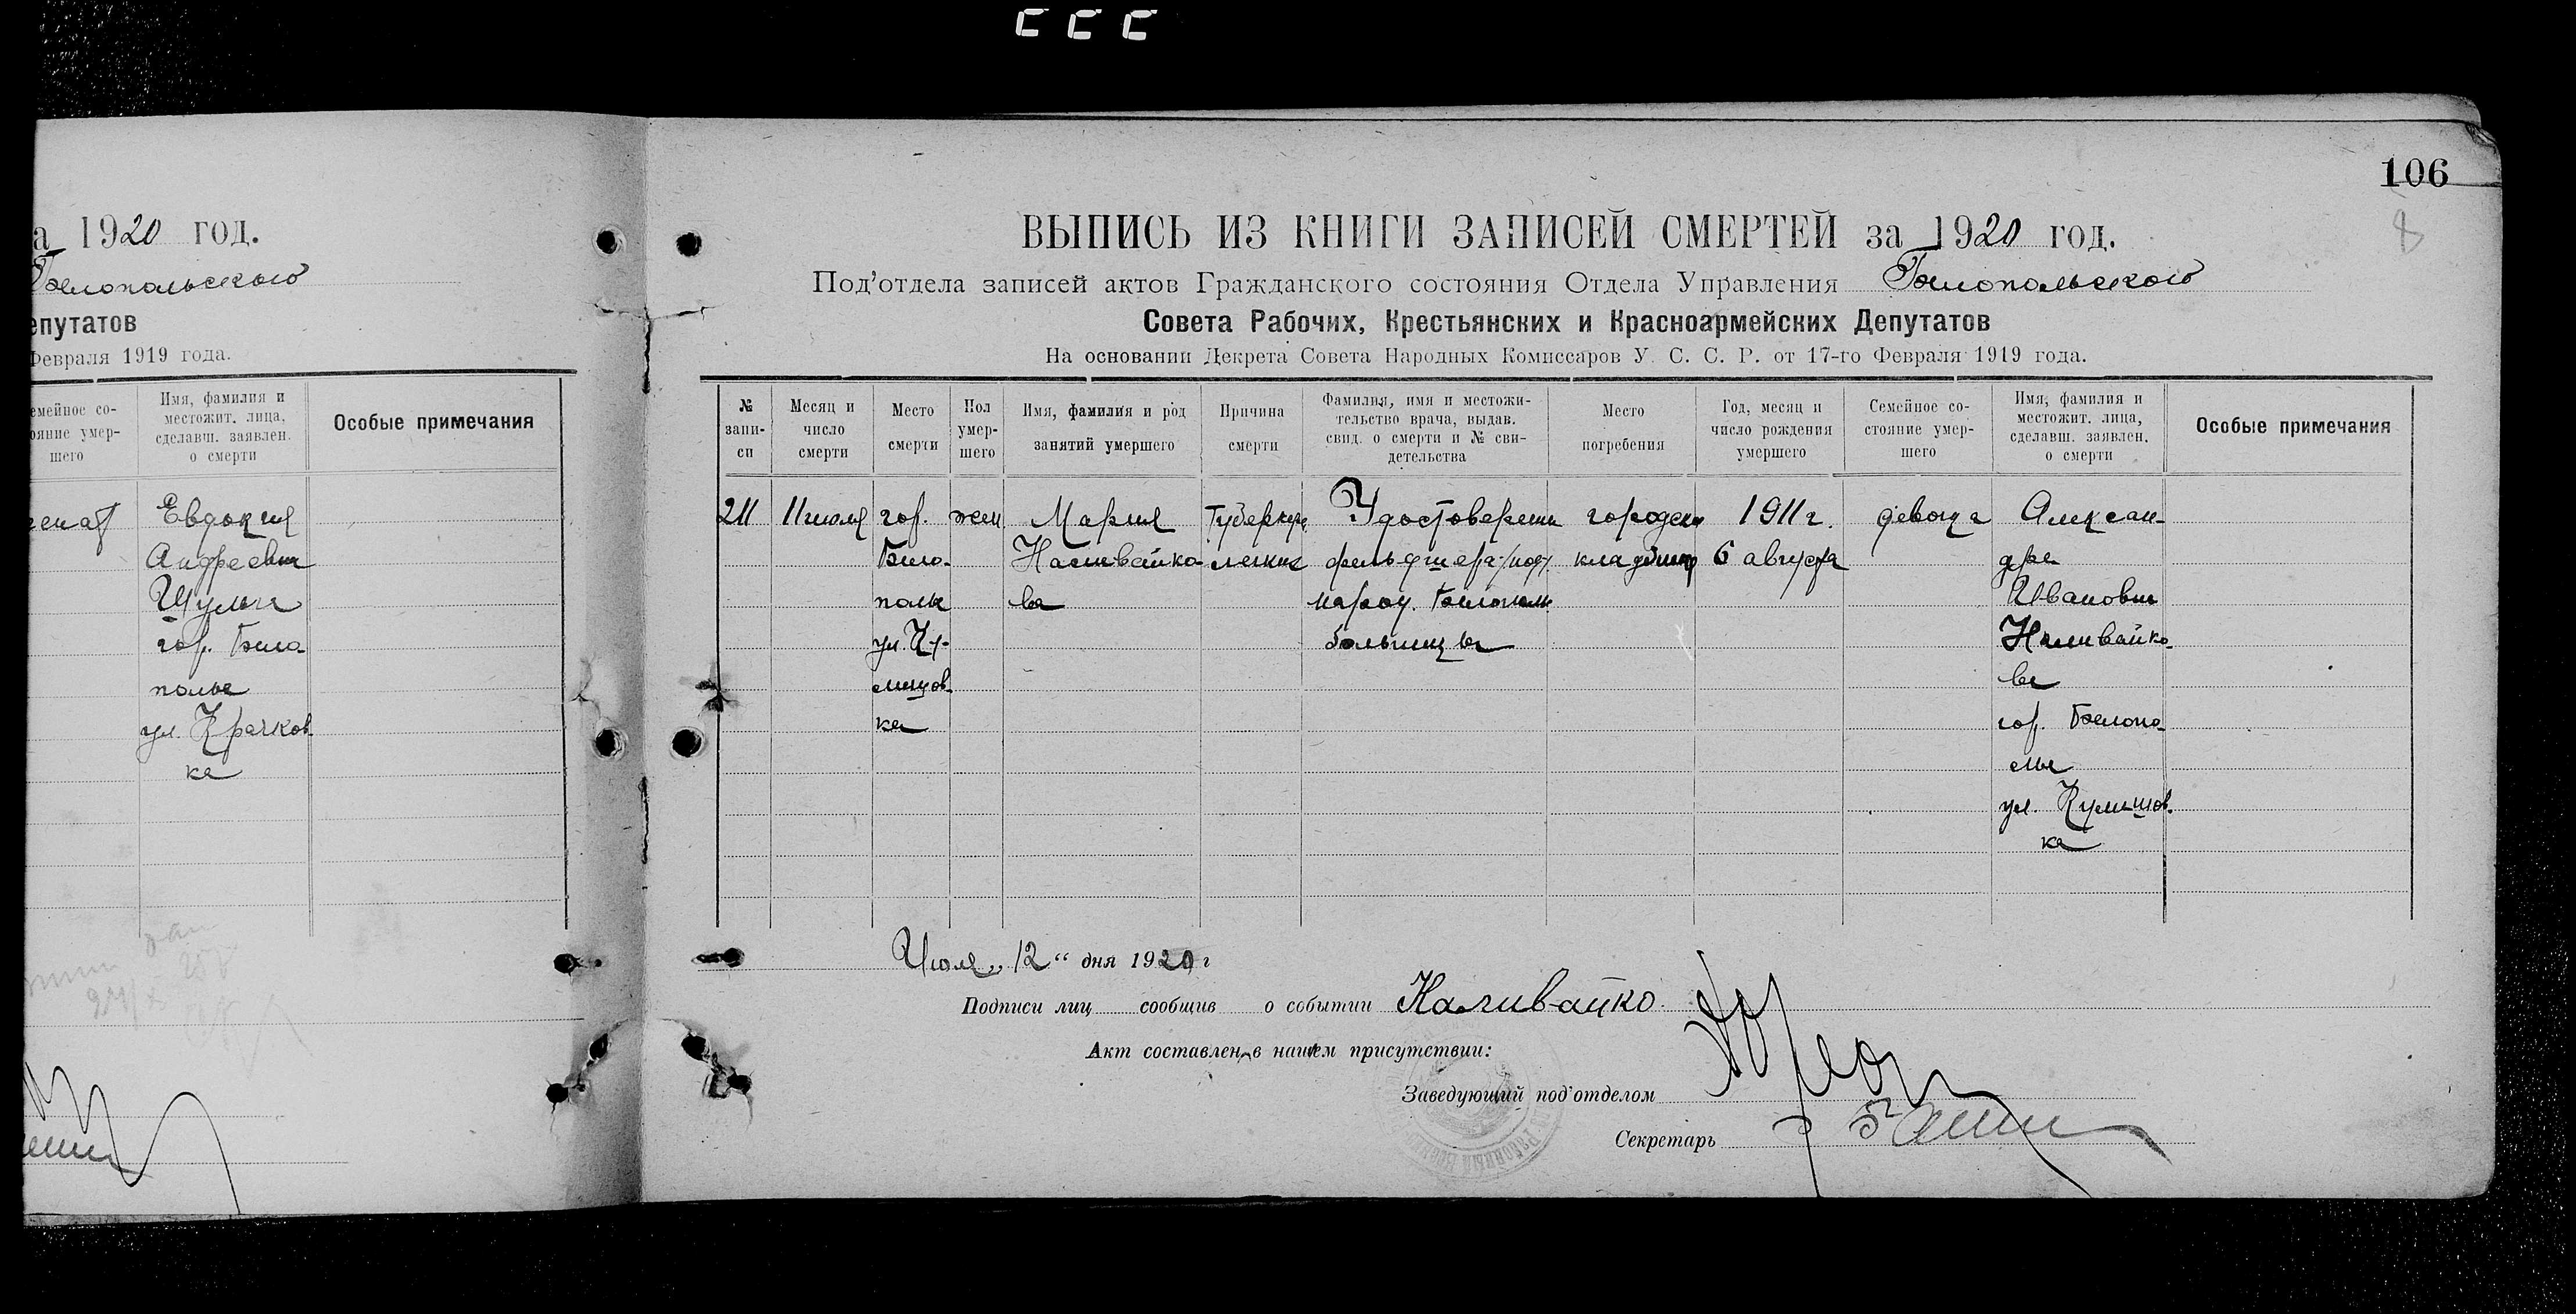 106
8
а 1920 год.
Белопольского
епутатов
Февраля 1919 года.
емейное со-
ояние умер-
шего
Имя, фамилия и
местожит. лица,
сделавш. заявлен.
о смерти
Особые примечания
женат
Евдокия
Андреевна
Шульга
гор. Бело
полье
ул. Крачков
ка
ВЫПИСЬ ИЗ КНИГИ ЗАПИСЕЙ СМЕРТЕЙ за 1920 год.
Под'отдела записей актов Гражданского состояния Отдела Управления Белопольского
Совета Рабочих, Крестьянских и Красноармейских Депутатов
На основании Декрета Совета Народных Комиссаров У. С. С. Р. от 17-го Февраля 1919 года.
№
запи-
си
Месяц и
число
смерти
Место
смерти
Пол
умер-
шего
Имя, фамилия и род
занятий умершего
Причина
смерти
Фамилия, имя и местожи-
тельство врача, выдав.
свид. о смерти и № сви-
детельства
Место
погребения
Год, месяц и
число рождения
умершего
Семейное со-
стояние умер-
шего
Имя, фамилия и
местожит. лица,
сделавш. заявлен.
о смерти
Особые примечания
211
11 июля
гор.
Бело-
полье
ул. Ку-
лишов-
ка
жен
Мария
Наливайко-
ва
Туберкул
легких
Удостоверение
фельдшера
народ. Белополь
больницы
городское
кладбище
1911 г.
6 августа
девочка
Алексан-
дра
Ивановна
Наливайко-
ва
гор. Белопо-
лье
ул. Кулишов-
ка
Июля „ 12 “ дня 1920 г
Подписи лиц сообщив о событии Наливайко
Акт составлен в нашем присутствии:
Заведующий под'отделом
Секретарь